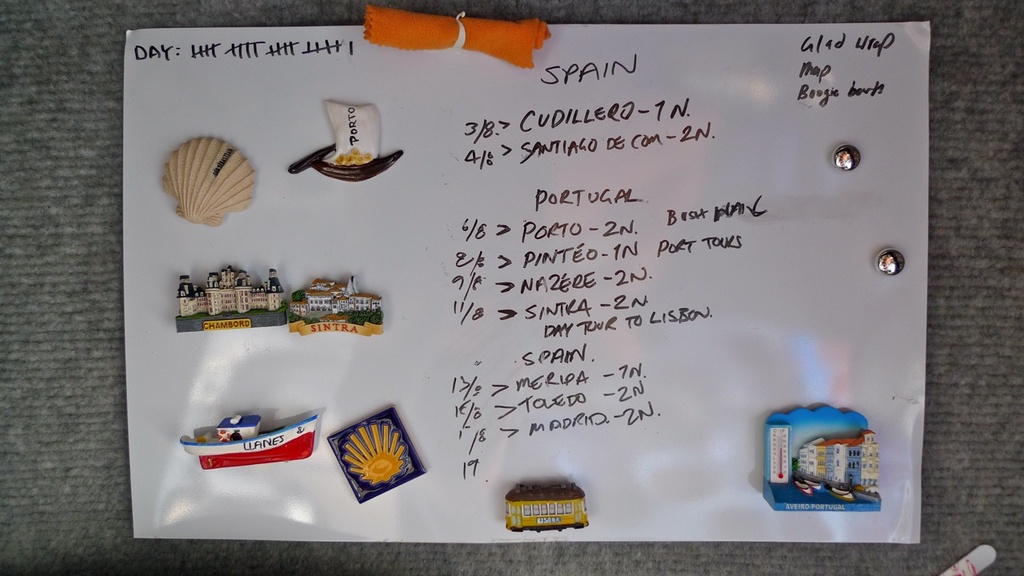 DAY:
SPAIN
Glad wrap
Map
Boogie boards
3/8 > CUDILLERO - 1N.
4/8 > SANTIAGO DE COM - 2N.
PORTUGAL
6/8 > PORTO - 2N.
8/8 > PINTÉO - 1N PORT TOURS
9/8 > NAZÉRE - 2N.
11/8 > SINTRA - 2N
DAY TOUR TO LISBON.
SPAIN.
13/8 > MERIDA - 1N.
> TOLEDO - 2N
> MADRID - 2N.
19
PORTO
CHAMBORD
SINTRA
LLANES
AVEIRO-PORTUGAL